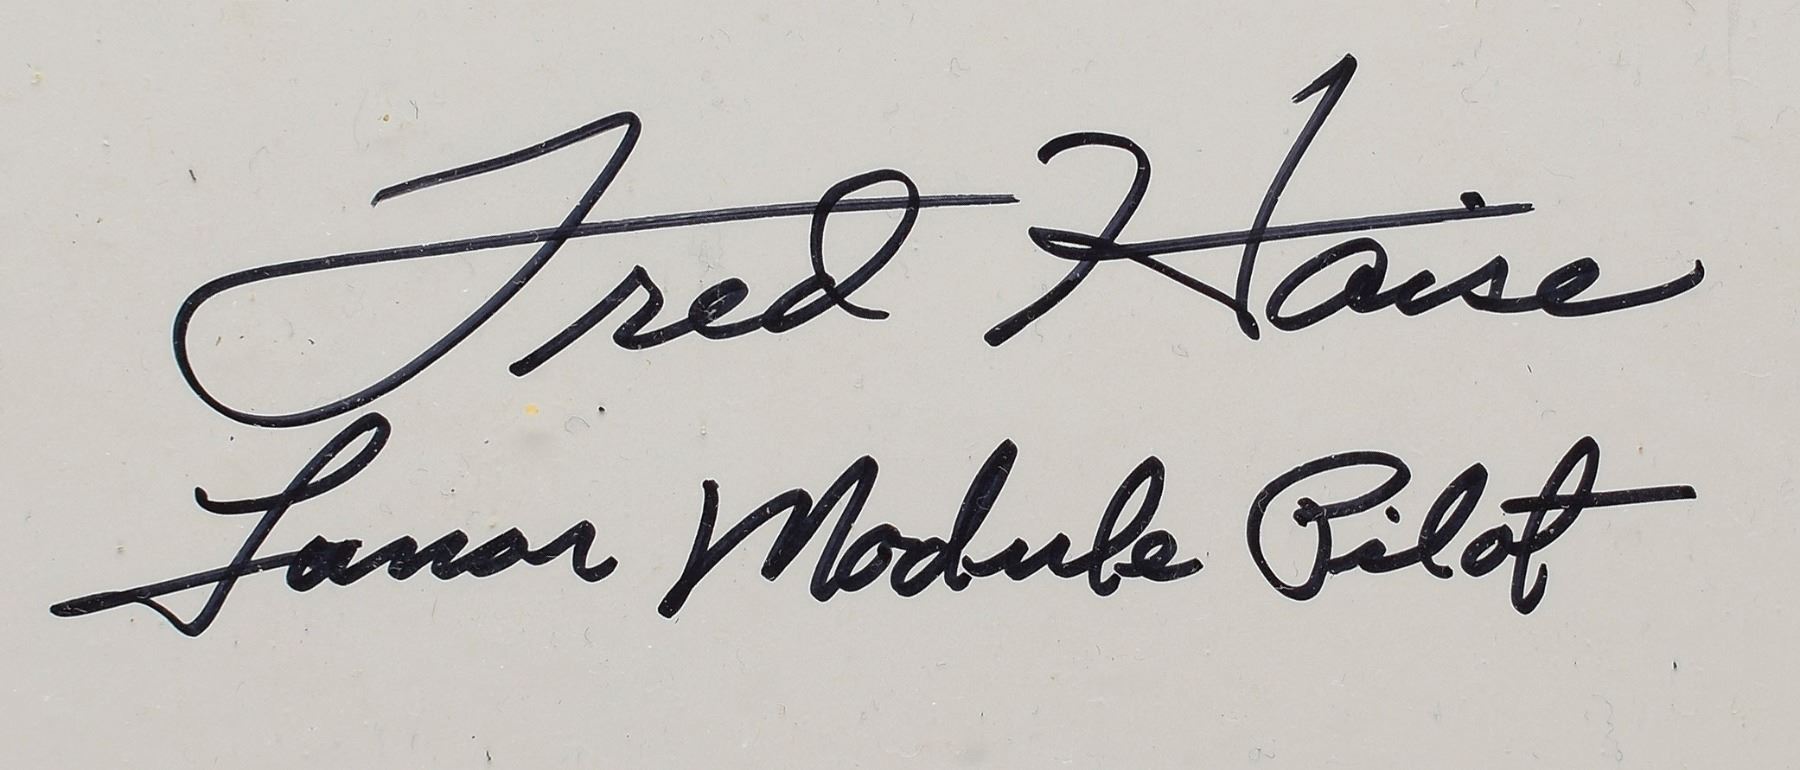 Fred Haise
Lunar Module Pilot